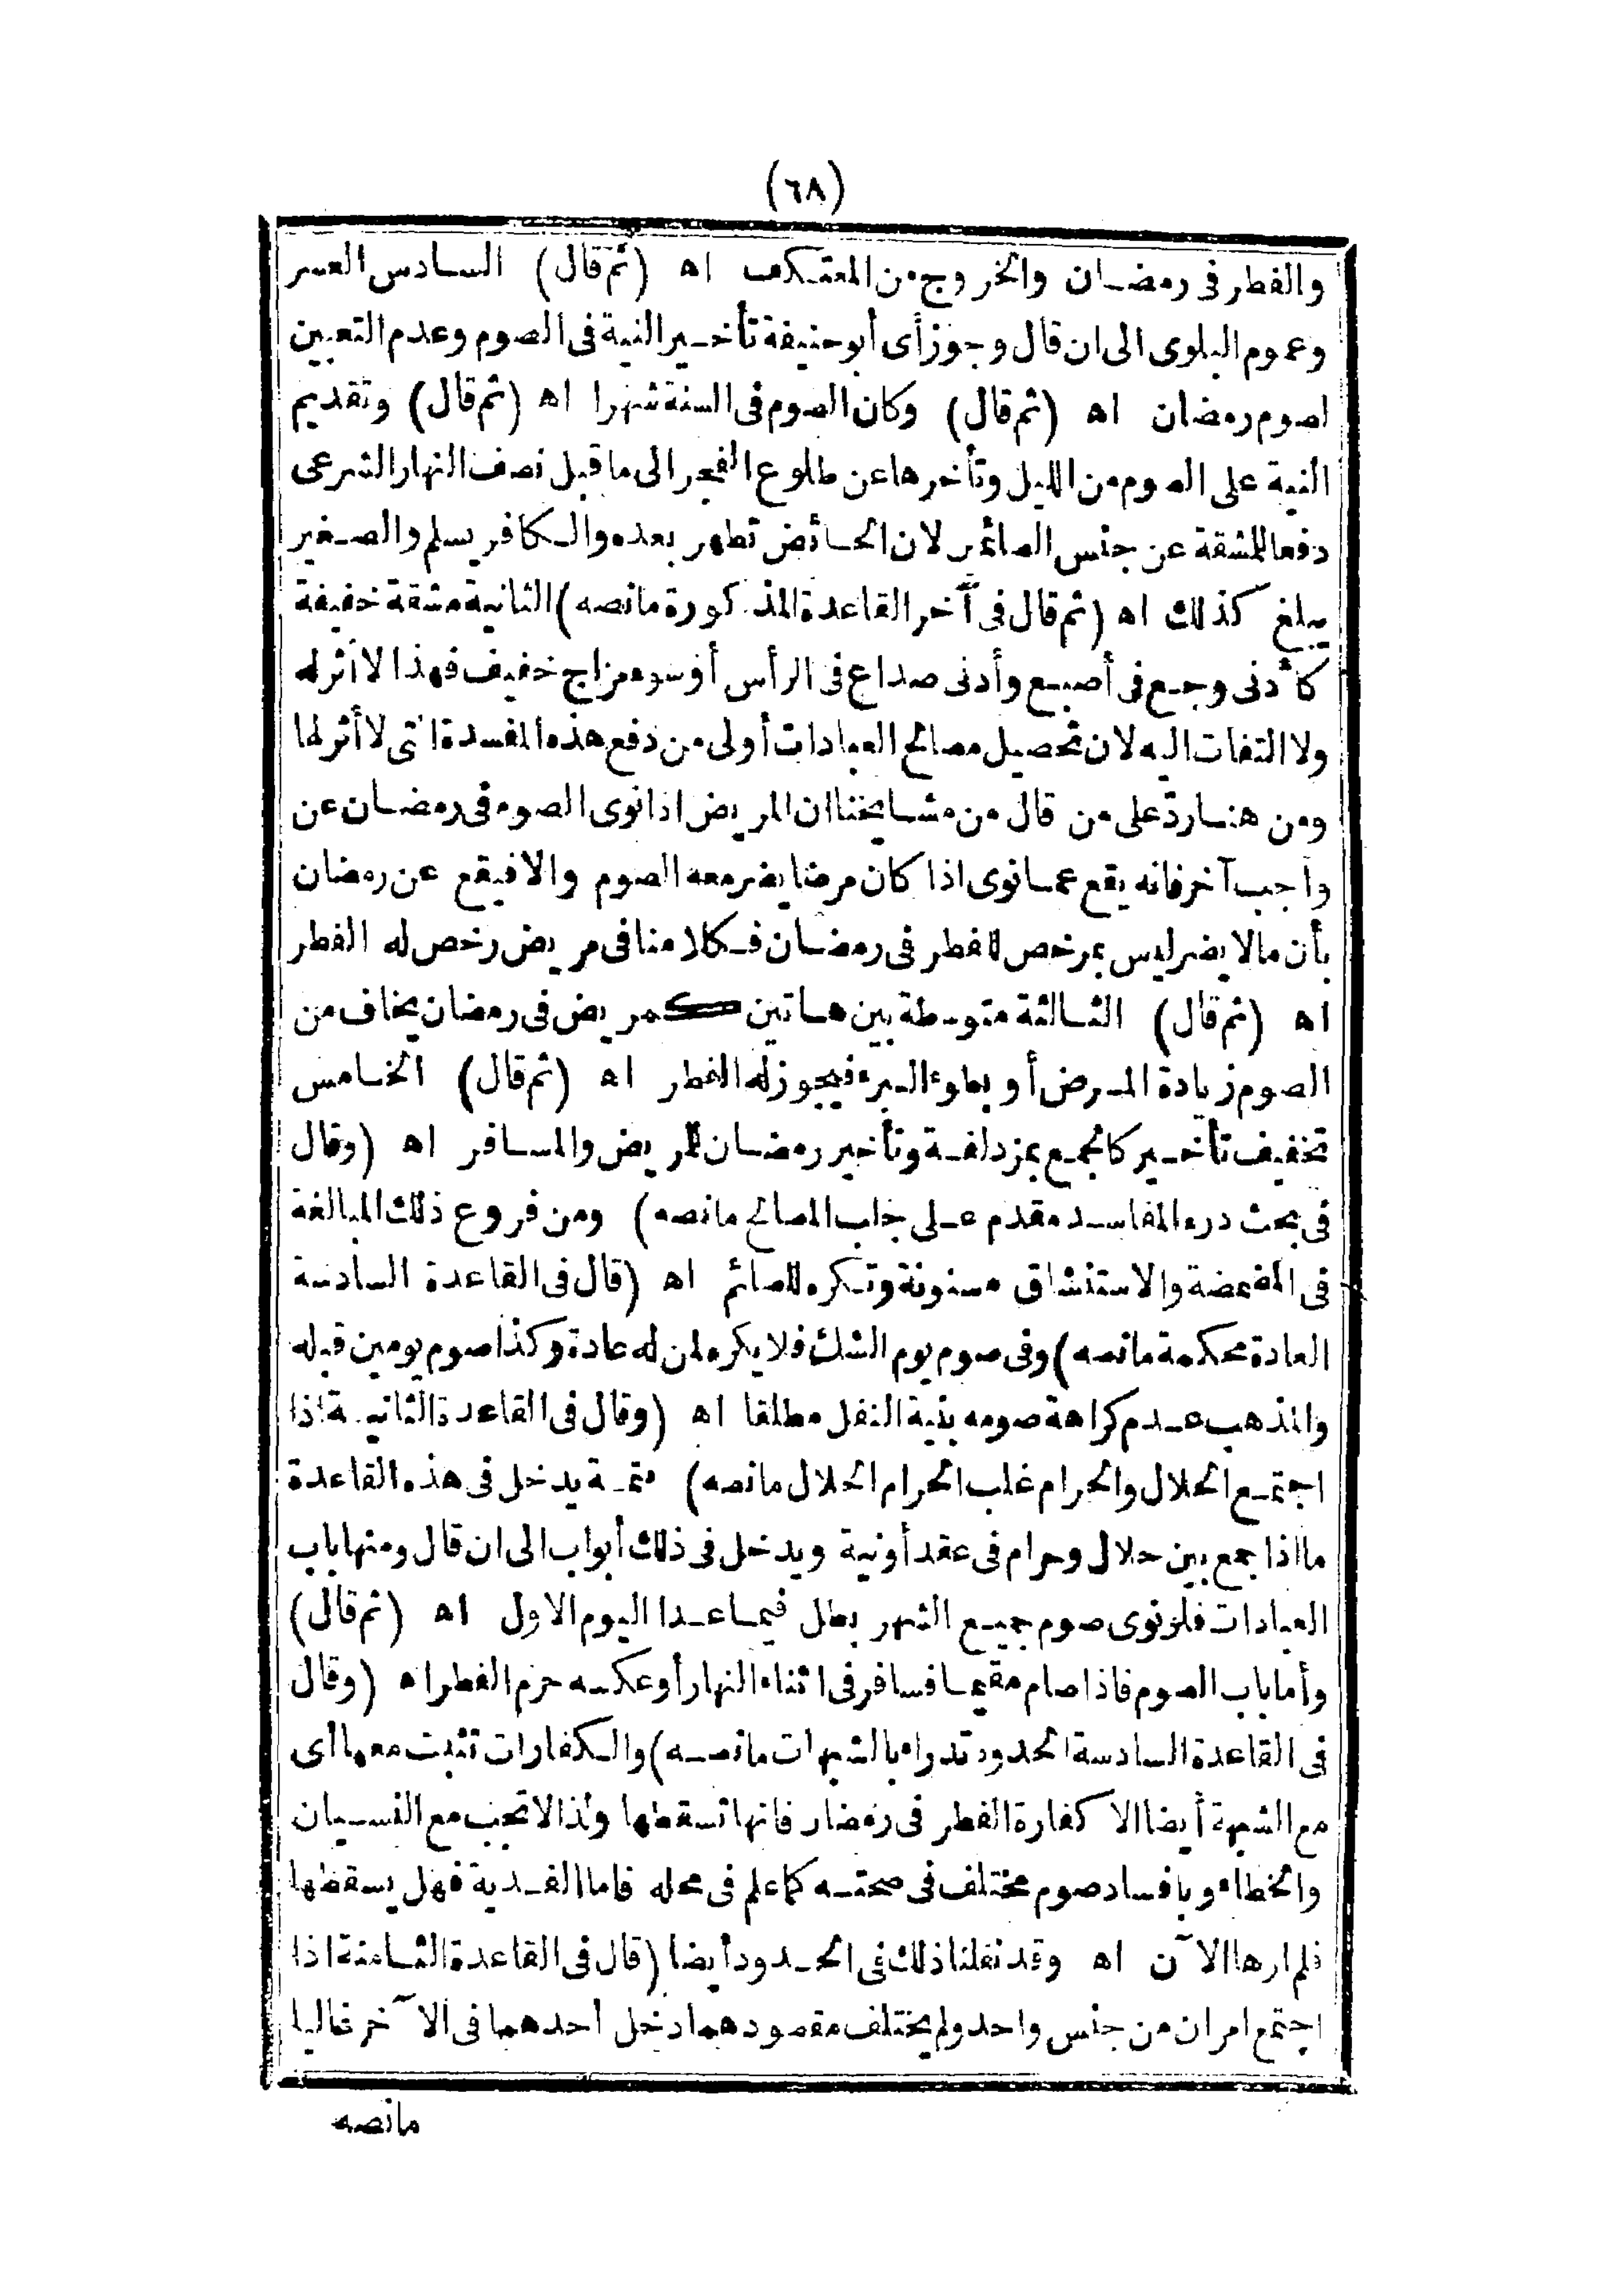 (٦٨)
والفطر فى رمضان والخروج من المعتكف اه (ثم قال) السادس العسر
وعموم البلوى الى ان قال وجوز أى أبو حنيفة تأخير النية فى الصوم وعدم التعيين
لصوم رمضان اه (ثم قال) وكان الصوم فى السنة شهرا اه (ثم قال) وتقديم
النية على الصوم من الليل وتأخرها عن طلوع الفجر الى ما قبل نصف النهار الشرعى
دفعا للمشقة عن جنس الصائمين لان الحائض تطهر بعده والكافر يسلم والصغير
يبلغ كذلك اه (ثم قال فى آخر القاعدة المذكورة مانصه) الثانية مشقة خفيفة
كأدنى وجع فى أصبع وأدنى صداع فى الرأس أو سوء مزاج خفيف فهذا لا أثر له
ولا التفات اليه لان تحصيل مصالح العبادات أولى من دفع هذه المفسدة التى لا أثر لها
ومن هنا رد على من قال من مشايخنا ان المريض اذا نوى الصوم فى رمضان عن
واجب آخر فانه يقع عما نوى اذا كان مرضا يضر معه الصوم والا فيقع عن رمضان
بأن ما لا يضر ليس بمرخص للفطر فى رمضان فكلامنا فى مريض رخص له الفطر
اه (ثم قال) الثالثة متوسطة بين هاتين كمريض فى رمضان يخاف من
الصوم زيادة المرض أو بطوء البرء فيجوز له الفطر اه (ثم قال) الخامس
تخفيف تأخير كالجمع بمزدلفة وتأخير رمضان للمريض والمسافر اه (وقال
فى بحث درء المفاسد مقدم على جلب المصالح مانصه) ومن فروع ذلك المبالغة
فى المضمضة والاستنشاق مسنونة وتكره للصائم اه (قال فى القاعدة السادسة
العادة محكمة مانصه) وفى صوم يوم الشك فلا يكره لمن له عادة وكذا صوم يومين قبله
والمذهب عدم كراهة صومه بنية النفل مطلقا اه (وقال فى القاعدة الثانية اذا
اجتمع الحلال والحرام غلب الحرام الحلال مانصه) تتمة يدخل فى هذه القاعدة
ما اذا جمع بين حلال وحرام فى عقد أو نية ويدخل فى ذلك أبواب الى ان قال ومنها باب
العبادات فلو نوى صوم جميع الشهر بطل فيما عدا اليوم الاول اه (ثم قال)
وأما باب الصوم فاذا صام مقيما فسافر فى اثناء النهار أو عكسه حرم الفطر اه (وقال
فى القاعدة السادسة الحدود تدراء بالشبهات مانصه) والكفارات تثبت معها أى
مع الشبهة أيضا الا كفارة الفطر فى رمضان فانها تسقطها ولذا لا تجب مع النسيان
والخطاء وبافساد صوم مختلف فى صحته كما علم فى محله فاما الفدية فهل يسقطها
فلم ارها الآن اه وقد نقلنا ذلك فى الحدود أيضا (قال فى القاعدة الثامنة اذا
اجتمع امران من جنس واحد ولم يختلف مقصودهما دخل أحدهما فى الآخر غالبا
مانصه